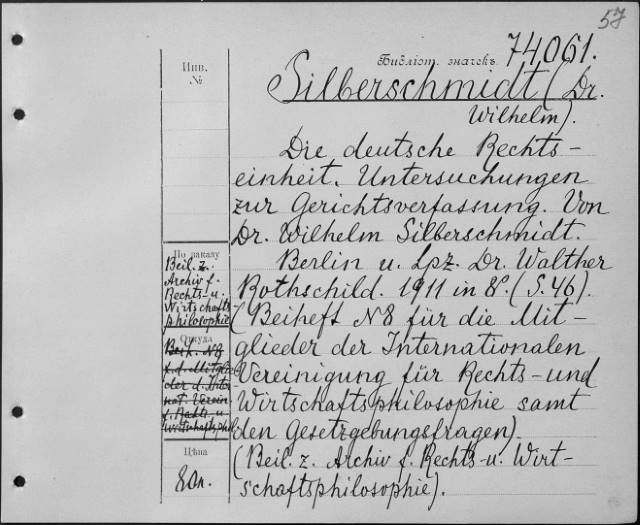 57
Библіот. значекъ 74061.
Инв.
№
Silberschmidt (Dr.
Wilhelm).
Die deutsche Rechts-
einheit. Untersuchungen
zur Gerichtsverfassung. Von
Dr. Wilhelm Silberschmidt.
Berlin u. Lpz. Dr. Walther
Rothschild. 1911 in 8°. (S. 46).
(Beiheft N8 für die Mit-
glieder der Internationalen
Vereinigung für Rechts- und
Wirtschaftsphilosophie samt
den Gesetzgebungsfragen).
(Beil. z. Archiv f. Rechts- u. Wirt-
schaftsphilosophie).
По заказу
Beil. z.
Archiv f.
Rechts- u.
Wirtschafts
philosophie
Откуда
Beih. N8
f. d. Mitglie
der d. Inter
nat. Verein.
f. Rechts- u.
Wirtschaftsphil
Цѣна
80п.